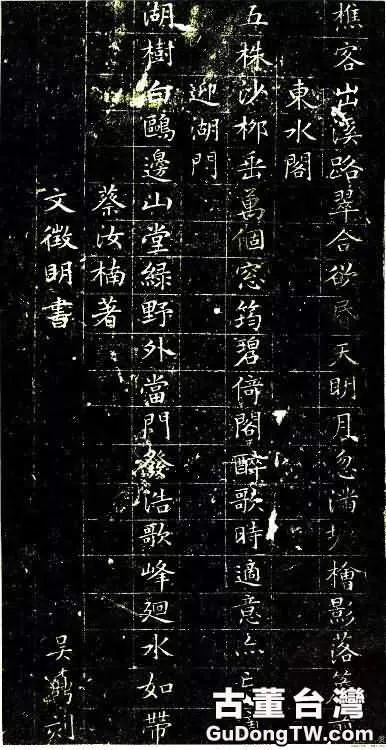 樵客出溪路翠合欲昏天明月忽滿檜影落
東水閣
五株沙柳垂萬個窓筠碧倚閣醉歌時適意亦忘
迎湖門
湖樹白鷗邊山堂綠野外當門發浩歌峰廻水如帶
蔡汝楠著
文徵明書
吳鼒刻
古董台灣
GuDongTW.com